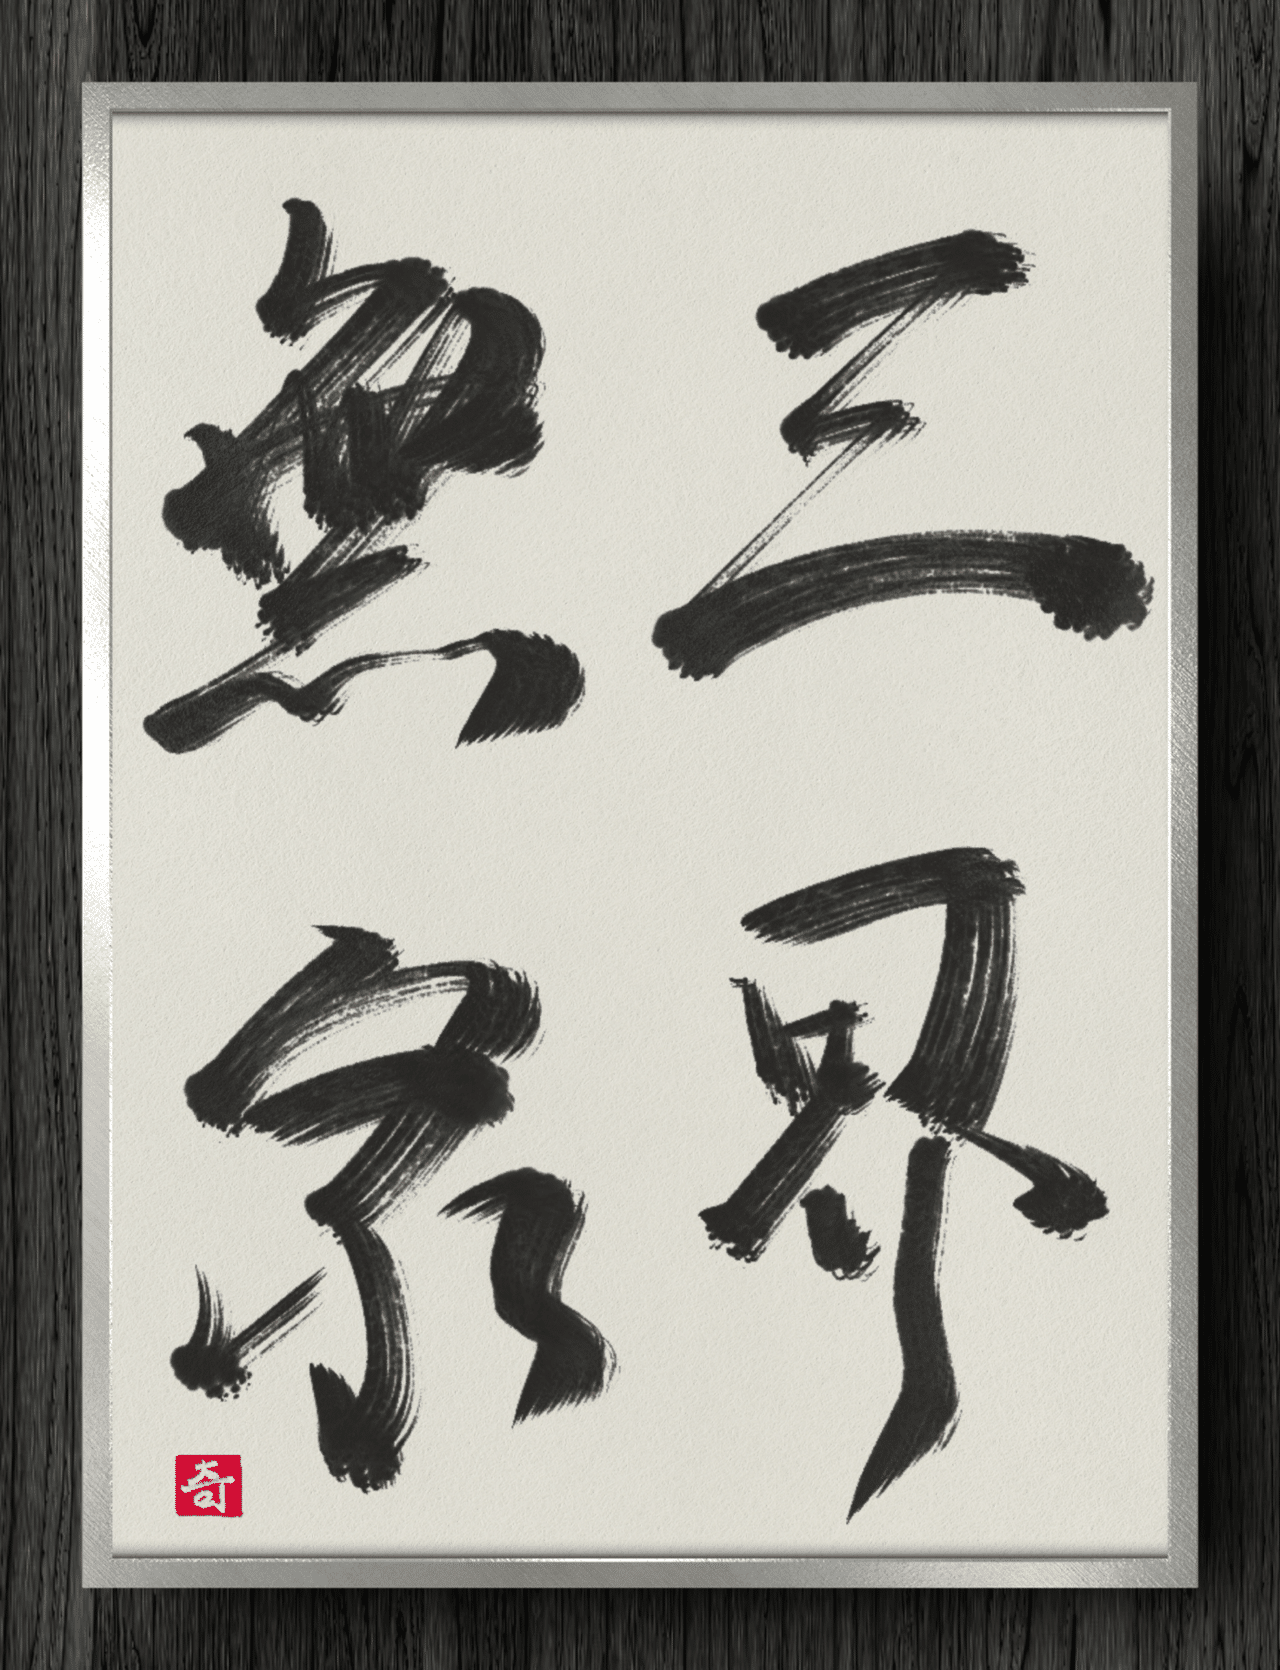 三界
無家
奇